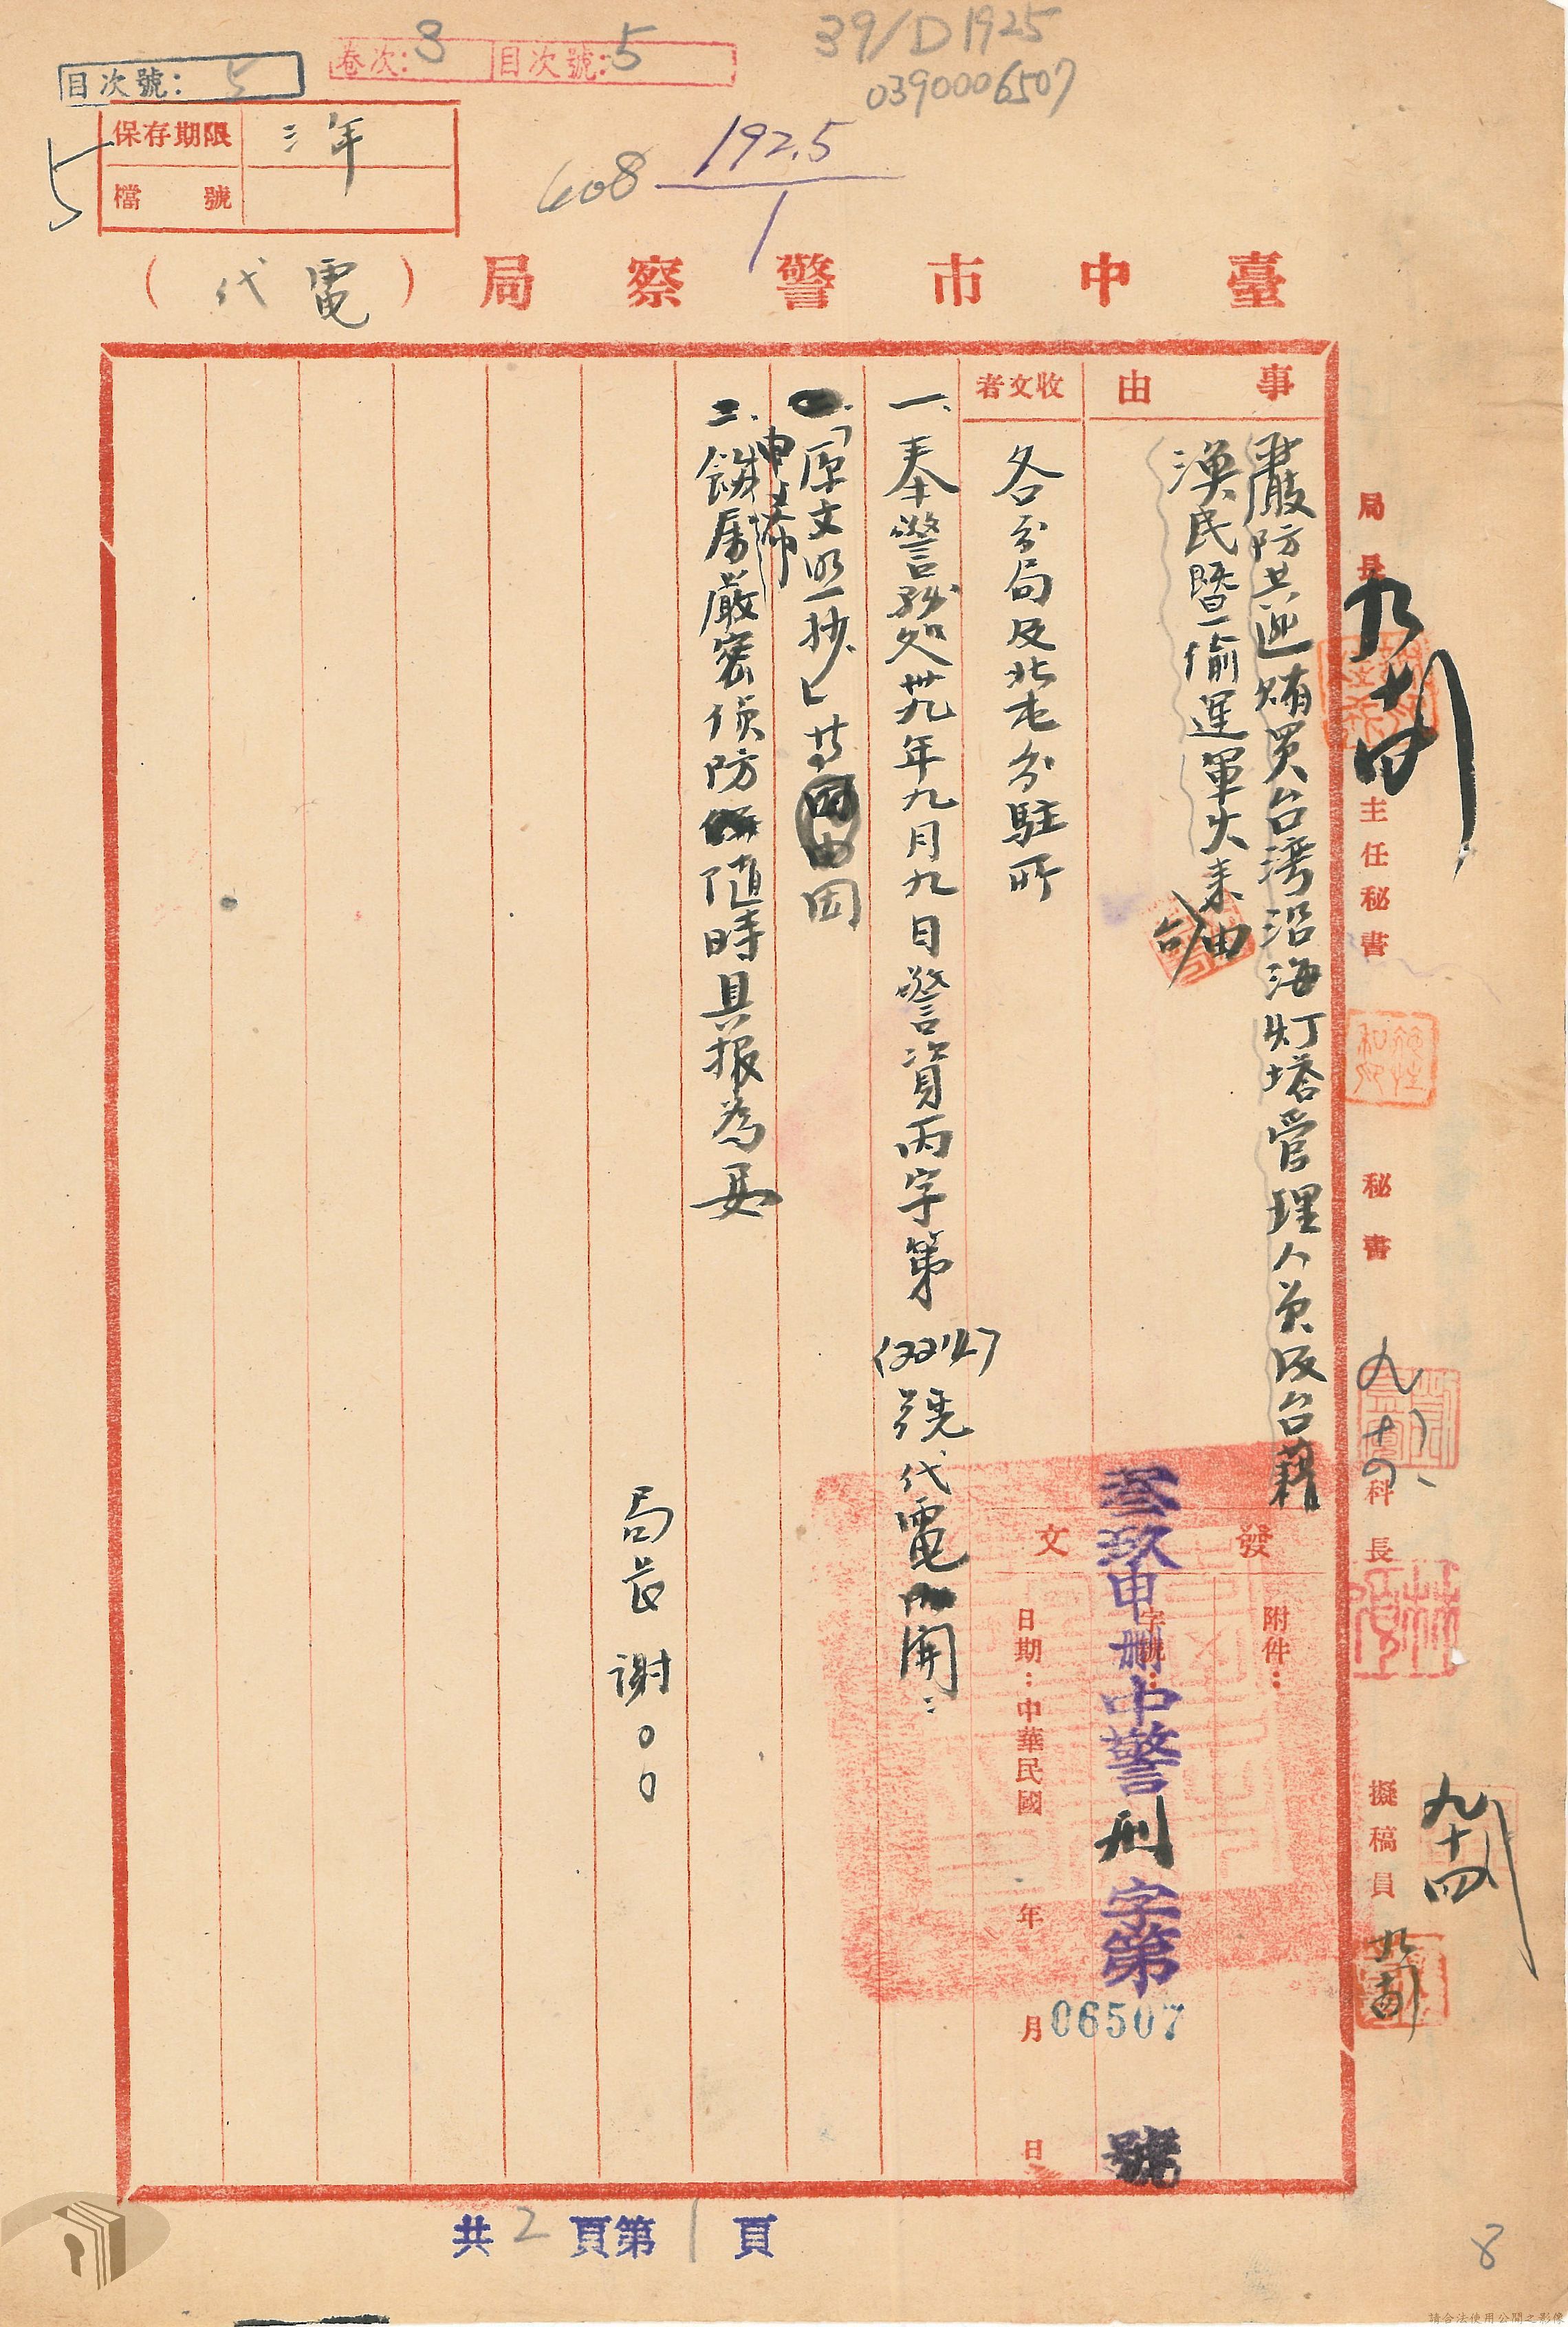 39/D1925
0390006507
卷次:3 目次號:5
目次號:5
保存期限 三年
檔號
5
408 192.5
1
臺中市警察局(代電)
事由
嚴防共匪賄買台灣沿海灯塔管理人員及台籍
漁民暨偷運軍火來台由
收文者
各分局及北屯分駐所
發文
附件:
字號:
叁玖申刪中警刑字第06507號
日期:中華民國 年 月 日
一、奉警務處卅九年九月九日警資丙字第 號代電開:
「原文照抄」等因
二、
希飭屬嚴密偵防隨時具報為要
局長 謝00
局長
主任秘書
秘書
科長
擬稿員
九十四
共2頁第1頁
8
請合法使用公開之影像